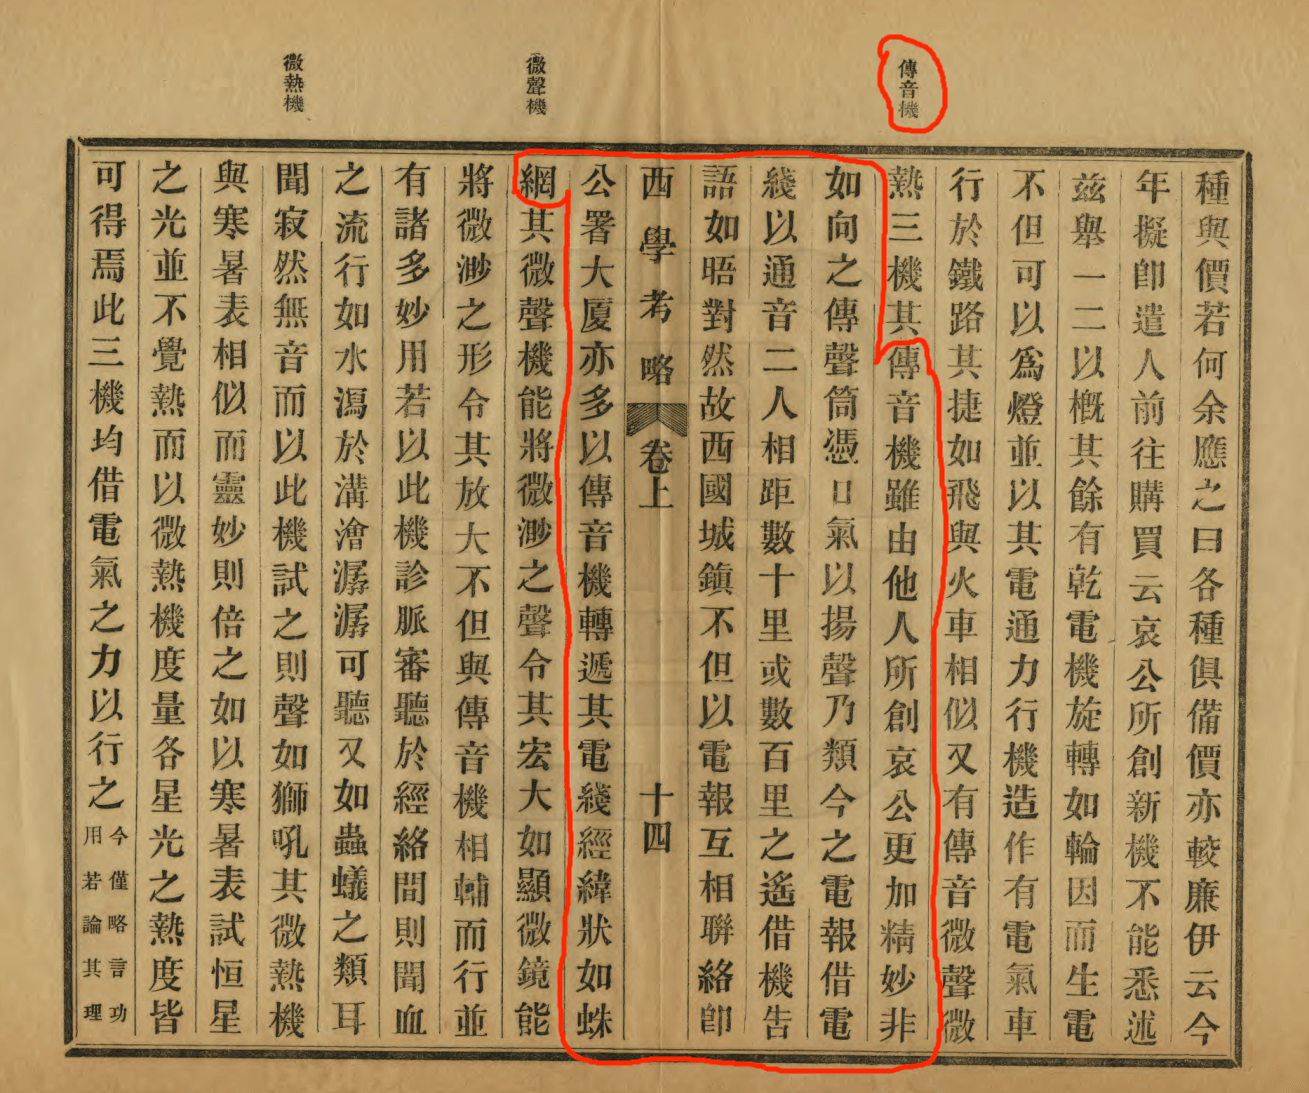 傳音機
微聲機
微熱機
種與價若何余應之曰各種俱備價亦較廉伊云今
年擬卽遣人前往購買云哀公所創新機不能悉述
兹舉一二以槪其餘有乾電機旋轉如輪因而生電
不但可以爲燈並以其電通力行機造作有電氣車
行於鐵路其捷如飛與火車相似又有傳音微聲微
熱三機其傳音機雖由他人所創哀公更加精妙非
如向之傳聲筒憑口氣以揚聲乃類今之電報借電
綫以通音二人相距數十里或數百里之遙借機告
語如晤對然故西國城鎭不但以電報互相聯絡卽
西學考略 卷上 十四
公署大厦亦多以傳音機轉遞其電綫經緯狀如蛛
網其微聲機能將微渺之聲令其宏大如顯微鏡能
將微渺之形令其放大不但與傳音機相輔而行並
有諸多妙用若以此機診脈審聽於經絡間則聞血
之流行如水瀉於溝澮潺潺可聽又如蟲蟻之類耳
聞寂然無音而以此機試之則聲如獅吼其微熱機
與寒暑表相似而靈妙則倍之如以寒暑表試恒星
之光並不覺熱而以微熱機度量各星光之熱度皆
可得焉此三機均借電氣之力以行之今僅略言功用若論其理